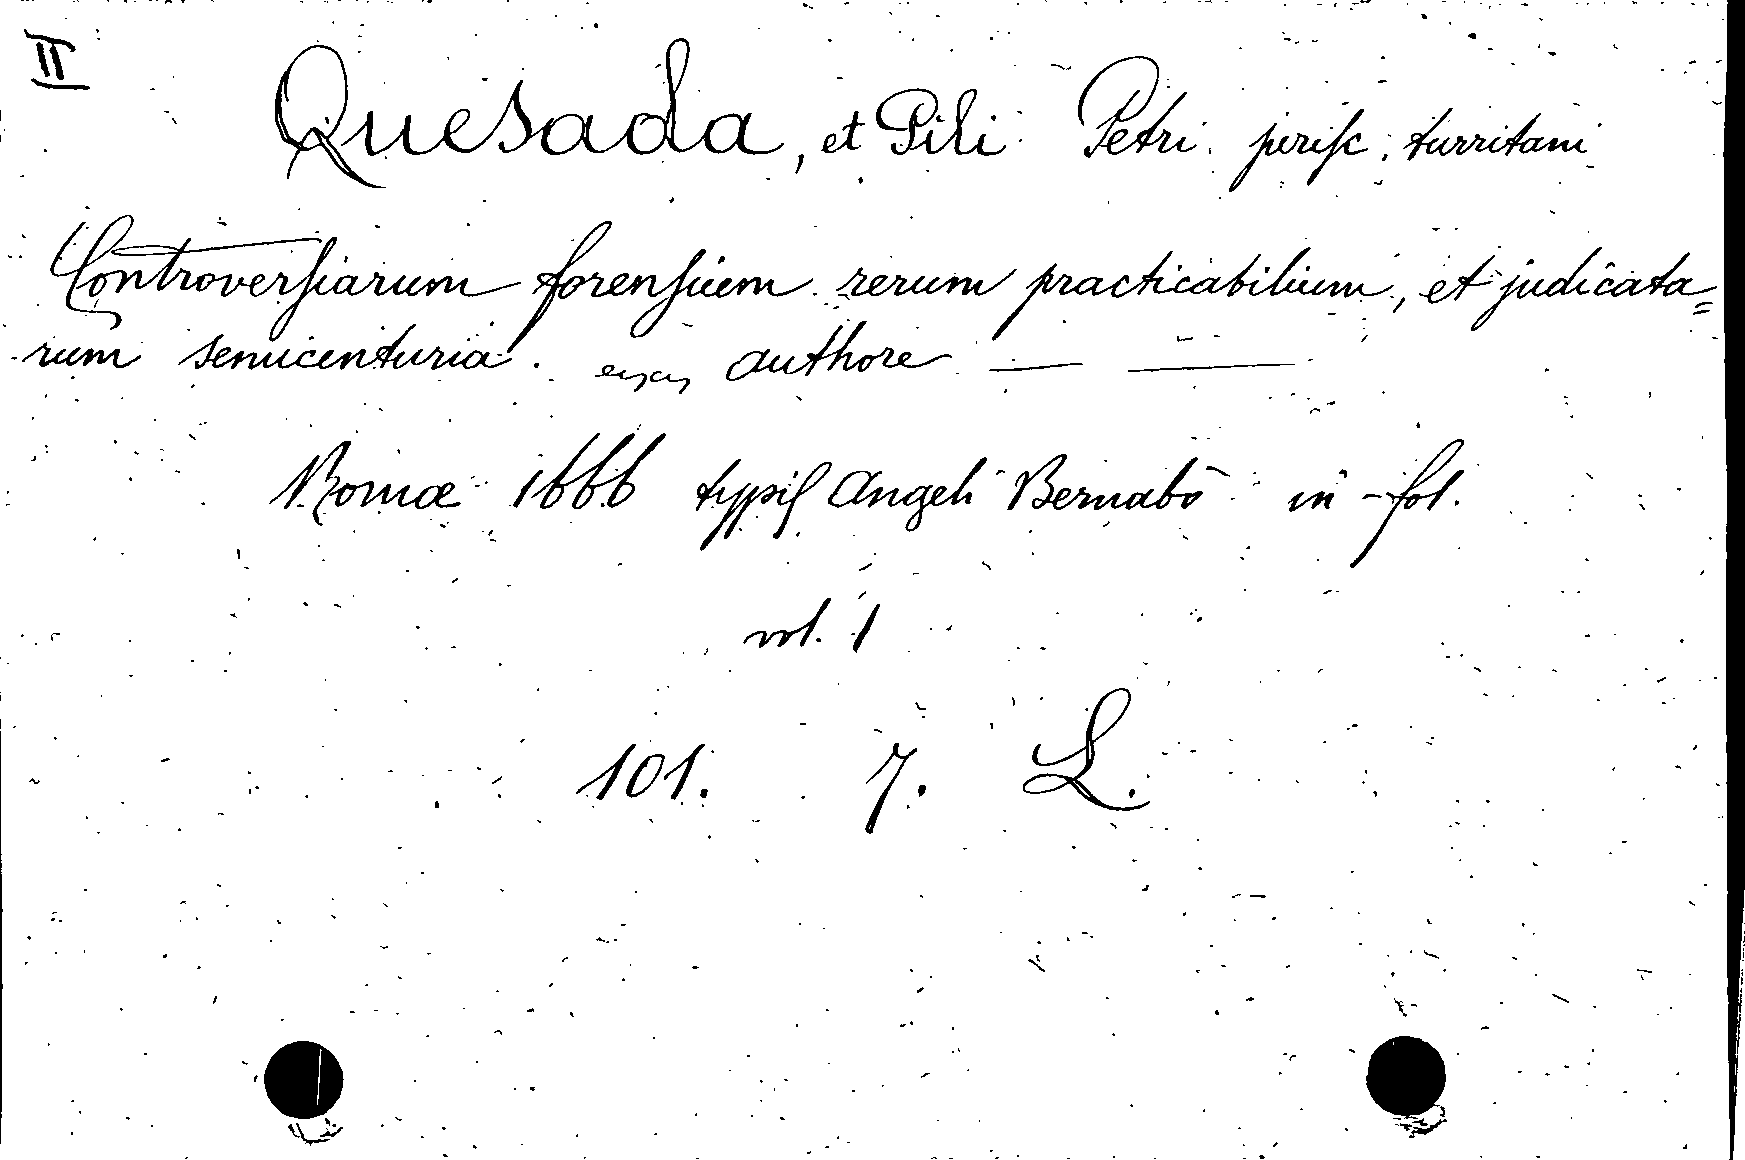 II
Quesada, et Pili Petri jurisc. turritani
Controversiarum forensium rerum practicabilium, et judicata=
rum semicenturia. authore — —
Romæ 1666 typis Angeli Bernabò in-fol.
vol. 1
101. 7. L.